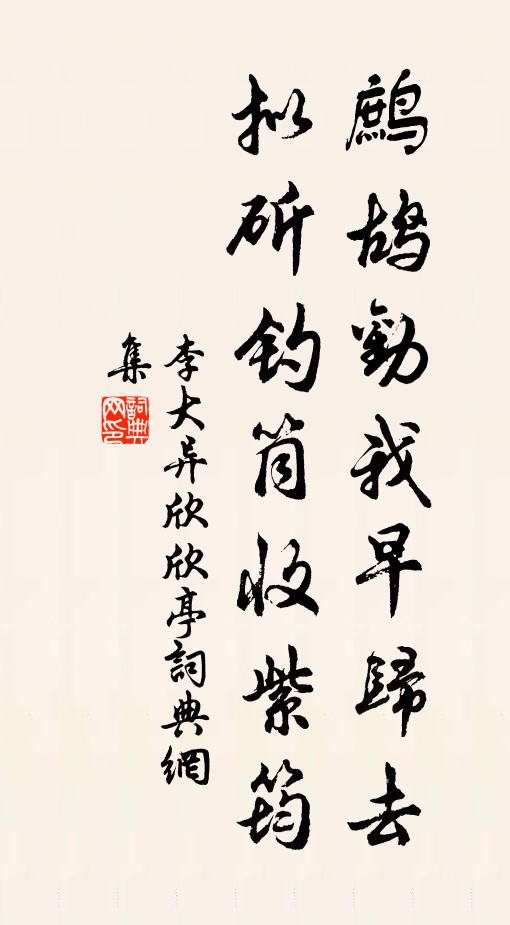 鷓鴣勸我早歸去
拟斫鈞筒收紫筠
李大异欣欣亭詞典網
集
詞典网印